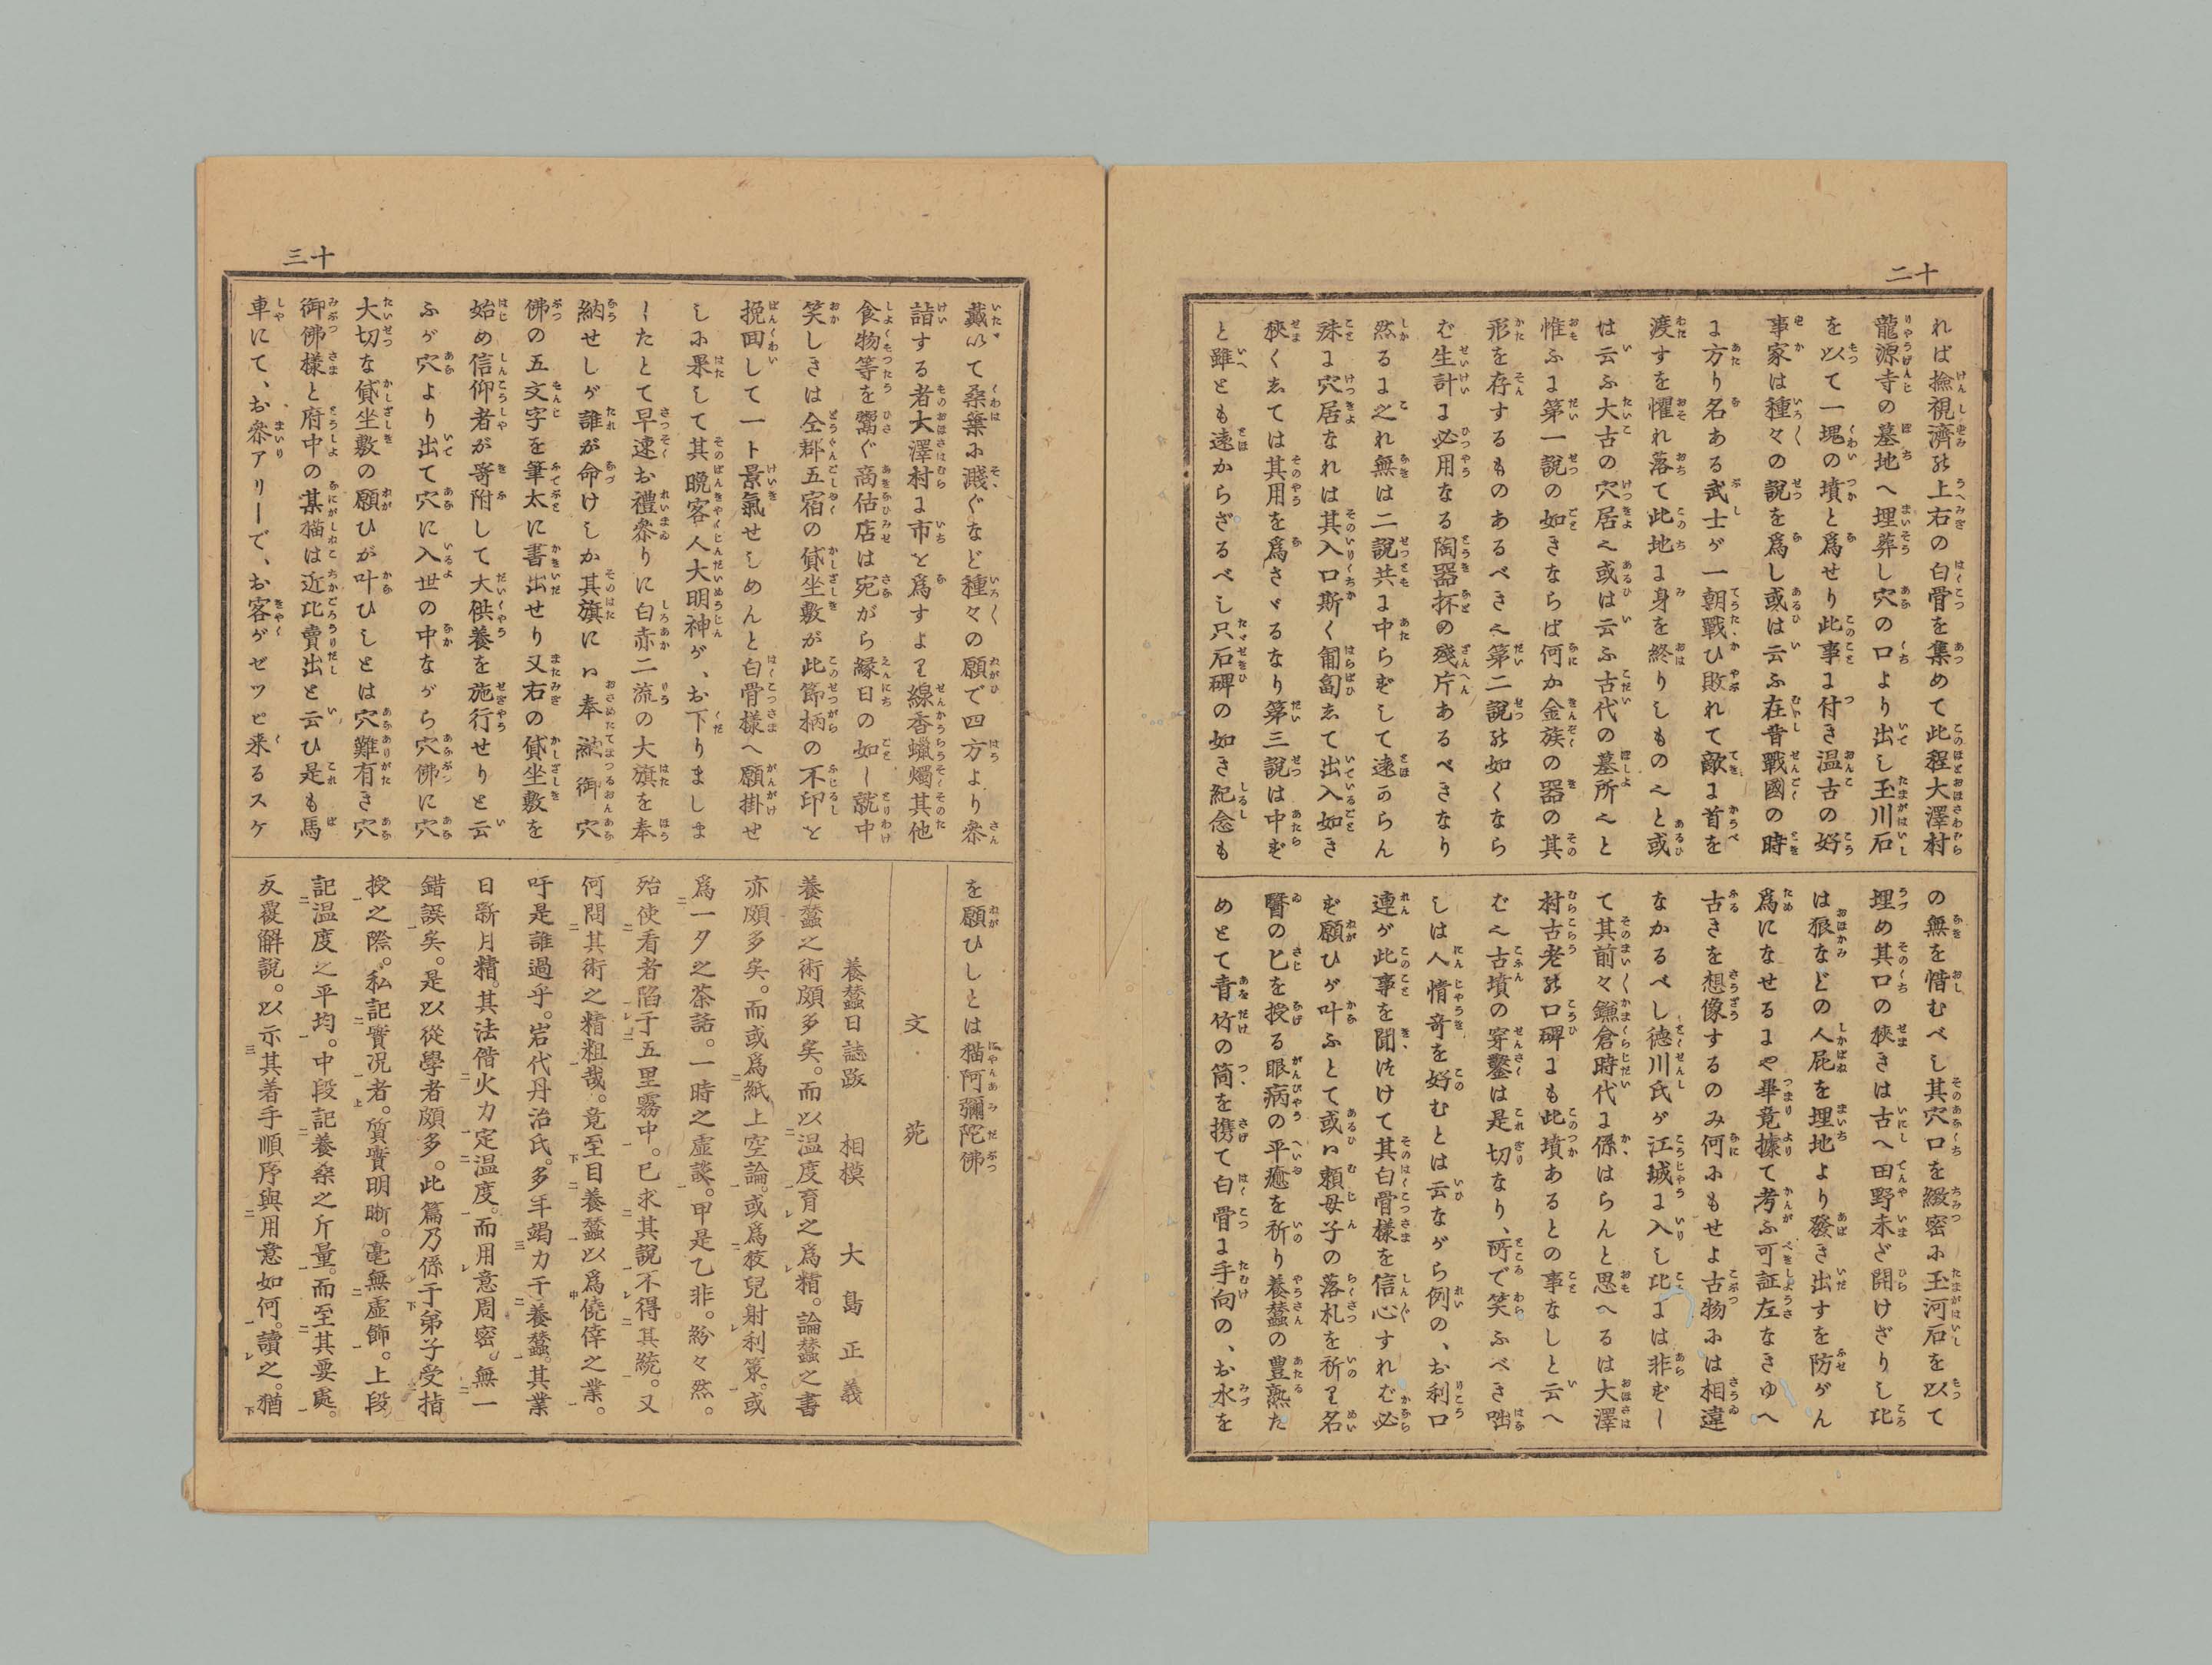 十二
れば撿視濟の上右の白骨を集めて此程大澤村
龍源寺の墓地へ埋葬し穴の口より出し玉川石
を以て一塊の墳と爲せり此事に付き温古の好
事家は種々の説を爲し或は云ふ在昔戰國の時
に方り名ある武士が一朝戰ひ敗れて敵に首を
渡すを懼れ落て此地に身を終りしものへと或
は云ふ大古の穴居へ或は云ふ古代の墓所へと
惟ふに第一説の如きならば何か金族の器の其
形を存するものあるべきへ第二説の如くなら
ば生計に必用なる陶器抔の殘片あるべきなり
然るに之れ無は二説共に中らずして遠からん
殊に穴居なれは其入口斯く匍匐して出入如き
狹くしては其用を爲さゞるなり第三説は中ず
と雖とも遠からざるべし只石碑の如き紀念も
の無を惜むべし其穴口を緻密に玉河石を以て
埋め其口の狹きは古へ田野未ざ開けざりし比
は狼などの人屍を埋地より發き出すを防がん
爲になせるにや畢竟據て考ふ可証左なきゆへ
古きを想像するのみ何にもせよ古物には相違
なかるべし德川氏が江城に入し比には非ずー
て其前々鎌倉時代に係はらんと思へるは大澤
村古老の口碑にも此墳あるとの事なしと云へ
ばへ古墳の穿鑿は是切なり、所で笑ふべき咄
しは人情奇を好むとは云ながら例の、お利口
連が此事を聞つけて其白骨樣を信心すれば必
ず願ひが叶ふとて或ハ頼母子の落札を祈り名
醫の匕を授る眼病の平癒を祈り養蠶の豊熟た
めとて青竹の筒を携て白骨に手向の、お水を
十三
戴いて桑葉に濺ぐなど種々の願で四方より參
詣する者大澤村に市を爲すより線香蠟燭其他
食物等を鬻ぐ商估店は宛がら縁日の如し就中
笑しきは仝郡五宿の貸坐敷が此節柄の不印を
挽回して一ト景氣せしめんと白骨樣へ願掛せ
しに果して其晩客人大明神が、お下りましま
ーたとて早速お禮參りに白赤二流の大旗を奉
納せしが誰が命けしか其旗にハ奉納御穴
佛の五文字を筆太に書出せり又右の貸坐敷を
始め信仰者が寄附して大供養を施行せりと云
ふが穴より出て穴に入世の中ながら穴佛に穴
大切な貸坐敷の願ひが叶ひしとは穴難有き穴
御佛樣と府中の某猫は近比賣出と云ひ是も馬
車にて、お參アリーで、お客がゼツと来るスケ
を願ひしとは猫阿彌陀佛
文苑
養蠶日誌跋　相模　大島正義
養蠶之術頗多矣。而以温度育之爲精。論蠶之書
亦頗多矣。而或爲紙上空論。或爲狡兒射利策。或
爲一夕之茶話。一時之虚談。甲是乙非。紛々然。
殆使看者陷于五里霧中。已求其説不得其統。又
何問其術之精粗哉。竟至目養蠶以爲僥倖之業。
吁是誰過乎。岩代丹治氏。多年竭力于養蠶。其業
日新月精。其法偕火力定温度。而用意周密。無一
錯誤矣。是以從學者頗多。此篇乃係于弟子受指
授之際。私記實况者。質實明晰。毫無虚飾。上段
記温度之平均。中段記養桑之斤量。而至其要處。
反覆解説。以示其着手順序與用意如何。讀之。猶